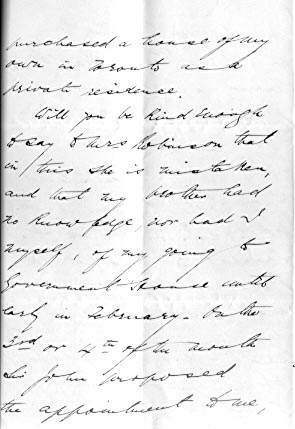 purchased a house of my
own in Toronto as a
private residence.
Will you be kind enough
to say to Mrs Robinson that
in this she is mistaken,
and that my brother had
no knowledge, nor had I
myself, of my going to
Government House until
early in February. On the
3rd or 4th of the month
Sir John proposed
the appointment to me,